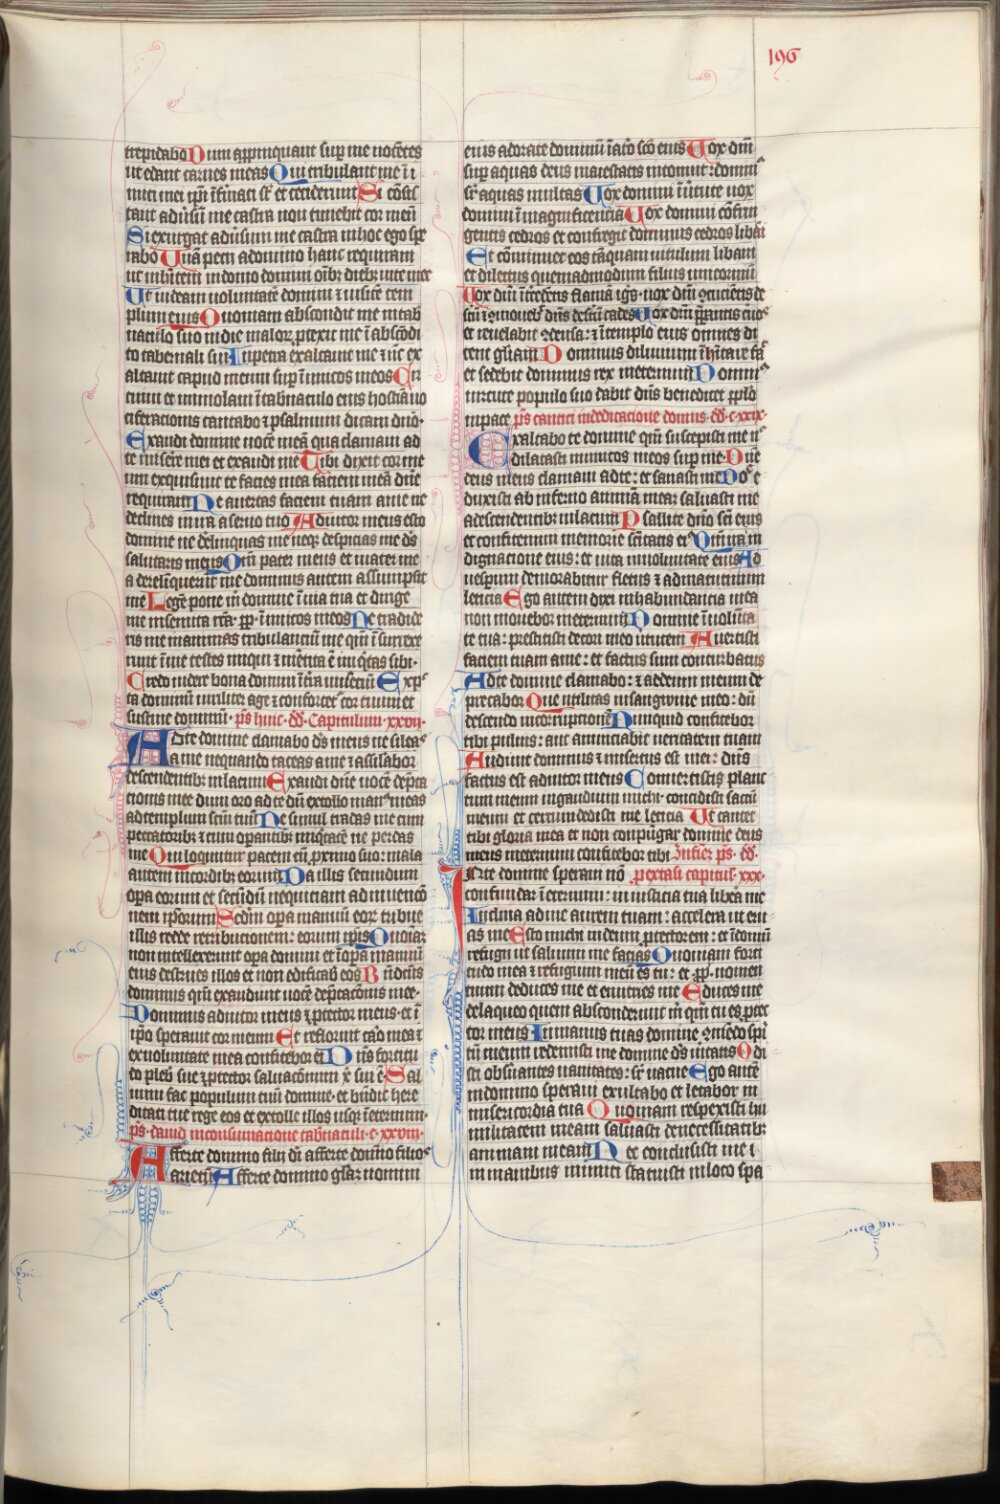 196
trepidabo Dum appropinquant sup me nocētes
ut edant carnes meas Qui tribulant me īi
mici mei ip̄i īfirmati st̄ et ceciderunt Si cōsis
tant adūsū me castra non timebit cor meū
Si exurgat adūsum me castra in hoc ego spe
rabo Unā petii adomino hanc requiram
ut inhītem indomo domini oīb; dieb; uite mee
Ut uideam uoluntatē domini ⁊ uisitē tem
plum eius Quoniam abscondit me in tab
naculo suo in die malor; ptexit me ī abscōdi
to tabernali sui In petra exaltauit me ⁊ nc̄ ex
altauit capud meum sup īimicos meos Cir
cuiui et immolaui ī tabnaculo eius hostiā uo
ciferacionis cantabo ⁊ psalmum dicam dn̄o·
Exaudi domine uocē meā qua clamaui ad
te miserē mei et exaudi me Tibi dixit cor me
um exquisiuit te facies mea faciem meā dn̄e
requiram Ne auertas faciem tuam a me ne
declines in ira a seruo tuo Adiutor meus esto
domine ne delinquas me neq; despicias me ds̄
salutaris meus Qm̄ pater meus et mater me
a derelīquerūt me dominus autem assumpsit
me Legē pone m̄ domine ī uia tua et dirige
me in semita rcā· pp̄· īimicos meos Ne tradide
ris me in animas tribulanciū me qm̄ ī surrexe
runt ī me testes iniqui ⁊ mētita ē iniqtas sibi·
Credo uidere bona domini ī tr̄a uiuenciū Expc
ta dominū uiriliter age ⁊ confortet̄ cor tuum et
sustine dominū· ps̄ huic· dd̄· Capitulum· xxvij·
Adte domine clamabo ds̄ meus ne sileas
a me nequando taceas a me ⁊ assilabor
descendentib; in lacum Exaudi dn̄e uocē dep̄ca
cionis mee dum oro ad te dū extollo man᷒ meas
ad templum scm̄ tuū Ne simul tradas me cum
peccatorib; ⁊ cum opantib; iniqtatē ne perdas
me Qui loquuntur pacem cū pximo suo· mala
autem in cordib; eorum Da illis secundum
opa eorum et scd̄m nequiciam adinuencō
nem ip̄sorum Scd̄m opa manuū eor; tribue
illis redde retribucionem· eorum ip̄is Quoniā
non intellexerunt opa domini et ī opa manuū
eius destrues illos et non edificab eos Bn̄dictus
dominus qm̄ exaudiuit uocē dep̄cacōnis mee·
Dominus adiutor meus ⁊ ptector meus· et ī
ip̄o sperauit cor meum Et refloruit caro mea ⁊
ex uoluntate mea confitebor ei Dn̄s fortitu
do pleb̄ sue ⁊ ptector saluacōnum x̄ sui ē· Sal
uum fac populum tuū domine· et bn̄dic here
ditati tue rege eos et extolle illos usq; ī eternum·
ps̄· dauid in consumacione tabnaculi· c· xxviij·
Afferte domino filij di afferte domino filios
arietū Afferte domino glar̄ nomini
eius adorate dominū ī atō scō eius Uox dn̄i
sup aquas deus maiestatis intonuit· domin᷒
sr̄ aquas multas Uox domini ī uirtute uox
domini ī magnificencia Uox domini cōfrin
gentis cedros et confregit dominus cedros libāi
Et cōminuet eos tāquam uitulum libani
et dilectus quemadmodum filius unicornuū
Uox dn̄i ītcidētis flāmā ignis· uox dn̄i ꝯcucientis de
sm̄ ⁊ ꝯmouebit dn̄s desertū cades Uox dn̄i pparantis cuos
et reuelabit ꝯdensa· ⁊ ī templo eius omnes di
cent gliam Dominus diluuium ī hītare fac̄
et sedebit dominus rex in eternum Domin᷒
uirtutē populo suo dabit dn̄s benedicet pplo
in pace ps̄ cantici in dedicacione domus· dd̄· c· xxix·
Exaltabo te domine qm̄ suscepisti me n̄
dilatasti inimicos meos sup me· Dn̄e
deus meus clamaui ad te· et sanasti me Dn̄e e
duxisti ab inferno animā meā· saluasti me
a descendentib; in lacum Psallite dn̄o sc̄i eius
et confitemini memorie sc̄itatis ei᷒ Qm̄ ira in
dignacione eius· et uita in uoluntate eius Ad
uesperum demorabitur fletus ⁊ ad matutinum
leticia Ego autem dixi in habundancia mea
non mouebor in eternum Domine ī uolūta
te tua· prestitisti decori meo uirtutem Auertisti
faciem tuam a me· et factus sum conturbatus
Ad te domine clamabo· ⁊ ad deum meum de
precabor Que utilitas in sanguine meo· dū
descendo in corrupcionē Numquid confitebor
tibi puluis· aut annunciabit ueritatem tuam
Audiuit dominus ⁊ misertus est mei· dn̄s
factus est adiutor meus Conuertistis planc
tum meum in gaudium michi· concidisti saccū
meum et circumdedisti me leticia Ut cantet
tibi gloria mea et non conpūgar domine deus
meus in eternum confitebor tibi In finē ps̄· dd̄·
IN te domine speraui nō p extasi capitul᷒ xxx·
confundar ī eternum· in iusticia tua libera me
Inclina ad me aurem tuam· accelera ut eru
as me Esto michi in deum ptectorem· et ī domū
refugij ut saluum me facias Quoniam forti
tudo mea ⁊ refugium meū es tu· et pp̄· nomen
tuum deduces me et enutries me Educes me
de laqueo quem absconderunt m̄ qm̄ tu es ptec
tor meus In manus tuas domine ꝯmēdo spi
tū meum redemisti me domine ds̄ ueritatis Odi
sti obsūantes uanitates· sr̄ uacue Ego autē
in domino speraui exultabo et letabor in
misericordia tua Quoniam respexisti hu
militatem meam saluasti de necessitatib;
animam meam Nec conclusisti me ī
in manibus inimici statuisti in loco spa